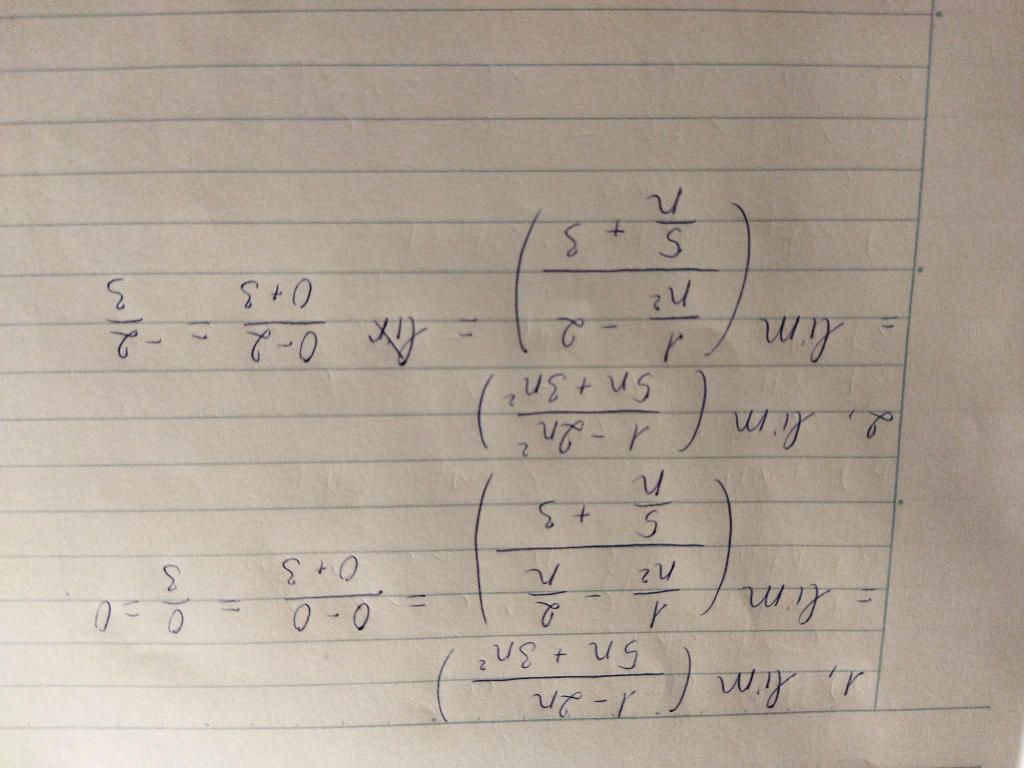 1, lim ( (1 - 2n) / (5n + 3n²) )
= lim ( (1/n² - 2/n) / (5/n + 3) ) = (0 - 0) / (0 + 3) = 0/3 = 0
2, lim ( (1 - 2n²) / (5n + 3n²) )
= lim ( (1/n² - 2) / (5/n + 3) ) = (0 - 2) / (0 + 3) = -2/3